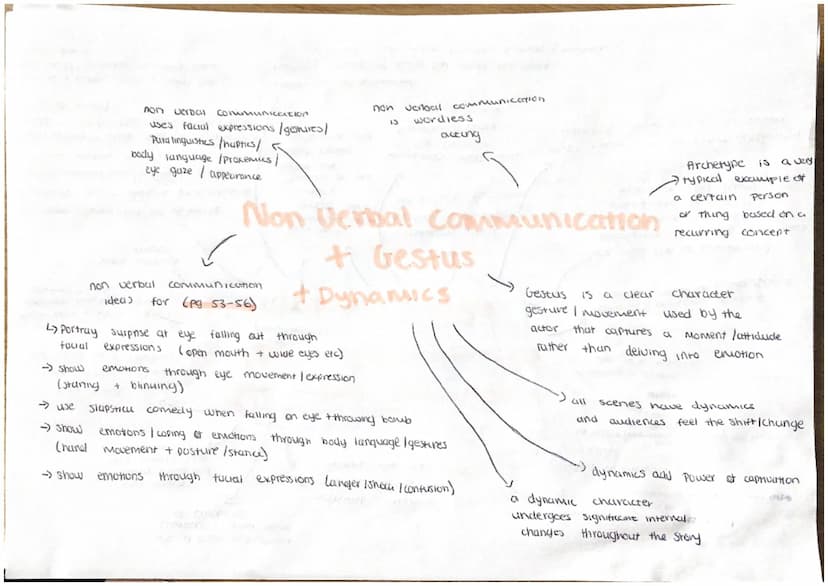 non verbal communication
uses facial expressions/gestures/
Paralinguistics/haptics/
body language/proxemics/
eye gaze/appearance
non verbal communication
is wordless
acting
Archetype is a very
typical example of
a certain person
or thing based on a
recurring concept
Non Verbal Communication
+ Gestus
+ Dynamics
non verbal communication
ideas for (pg 53-56)
↳ Portray surprise at eye falling out through
facial expressions (open mouth + wide eyes etc)
→ show emotions through eye movement/expression
(staring + blinking)
→ use slapstick comedy when falling on eye + throwing bomb
→ show emotions/coping of emotions through body language/gestures
(hand movement + posture/stance)
→ show emotions through facial expressions (anger/shock/confusion)
Gestus is a clear character
gesture/movement used by the
actor that captures a moment/attidude
rather than delving into emotion
all scenes have dynamics
and audiences feel the shift/change
dynamics add power of captivation
a dynamic character
undergoes significant internal
changes throughout the story